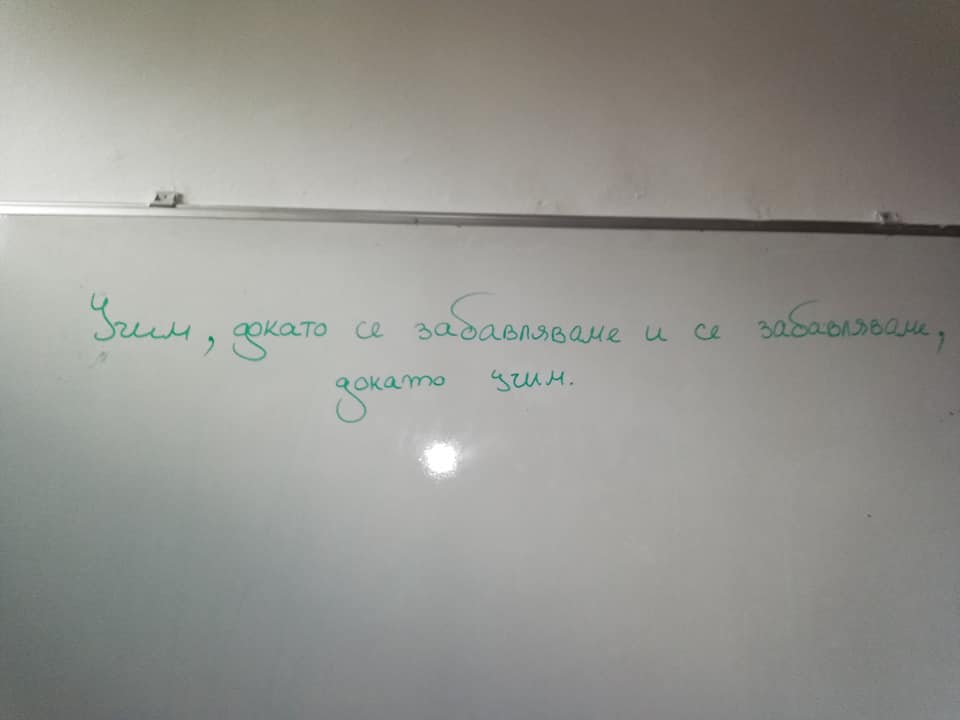 Учим, докато се забавляваме и се забавляваме,
докато учим.